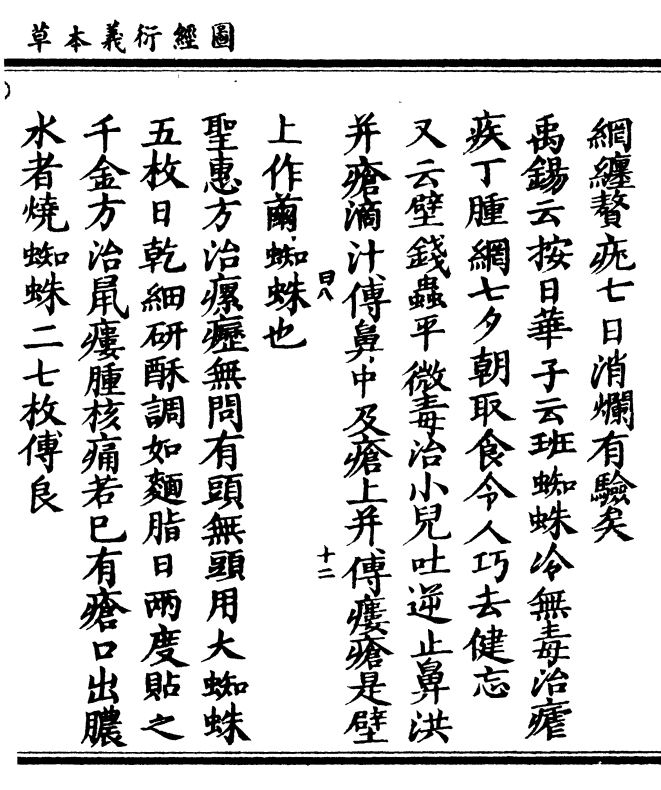 圖經衍義本草
網纏贅疣七日消爛有驗矣
禹錫云按日華子云班蜘蛛冷無毒治瘧
疾丁腫網七夕朝取食令人巧去健忘
又云壁錢蟲平微毒治小兒吐逆止鼻洪
并瘡滴汁傅鼻中及瘡上并傅瘻瘡是壁
曰八
十二
上作繭蜘蛛也
聖惠方治瘰癧無問有頭無頭用大蜘蛛
五枚日乾細研酥調如麵脂日兩度貼之
千金方治鼠瘻腫核痛若已有瘡口出膿
水者燒蜘蛛二七枚傅良